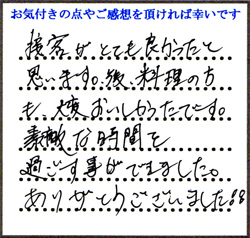 お気付きの点やご感想を頂ければ幸いです
接客がとても良かったと
思います。後、料理の方
も大変おいしかったです。
素敵な時間を
過ごす事ができました。
ありがとうございました!!